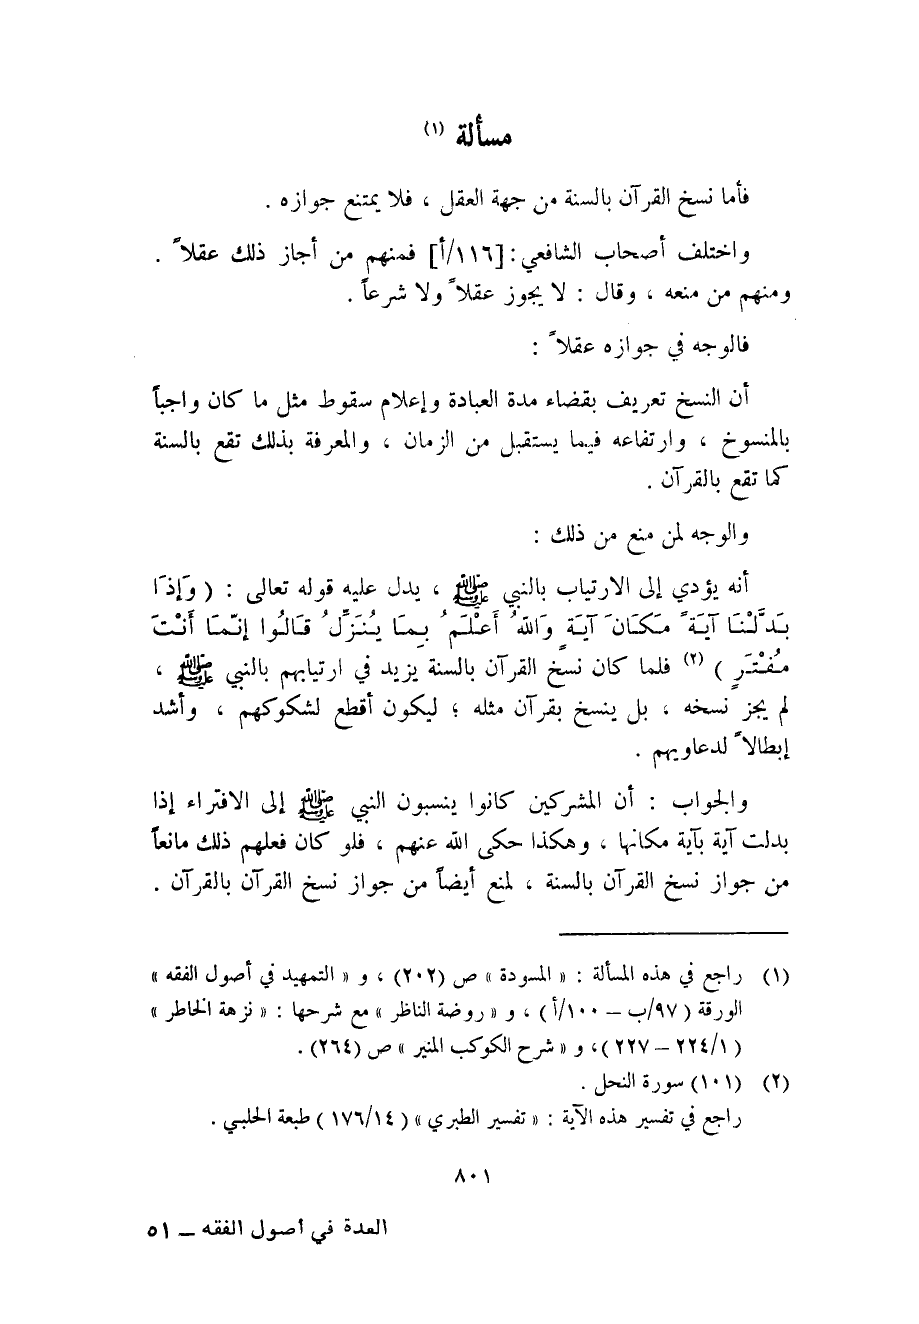 مسألة (١)
فأما نسخ القرآن بالسنة من جهة العقل ، فلا يمتنع جوازه .
واختلف أصحاب الشافعي : [١١٦/أ] فمنهم من أجاز ذلك عقلاً .
ومنهم من منعه ، وقال : لا يجوز عقلاً ولا شرعاً .
فالوجه في جوازه عقلاً :
أن النسخ تعريف بقضاء مدة العبادة وإعلام سقوط مثل ما كان واجباً
بالمنسوخ ، وارتفاعه فيما يستقبل من الزمان ، والمعرفة بذلك تقع بالسنة
كما تقع بالقرآن .
والوجه لمن منع من ذلك :
أنه يؤدي إلى الارتياب بالنبي ﷺ ، يدل عليه قوله تعالى : ( وَإذَا
بَدَّلْنَا آيَةً مَكَانَ آيَةٍ وَاللهُ أعْلَمُ بِمَا يُنَزِّلُ قَالُوا إنّمَا أنْتَ
مُفْتَرٍ ) (٢) فلما كان نسخ القرآن بالسنة يزيد في ارتيابهم بالنبي ﷺ ،
لم يجز نسخه ، بل ينسخ بقرآن مثله ؛ ليكون أقطع لشكوكهم ، وأشد
إبطالاً لدعاويهم .
والجواب : أن المشركين كانوا ينسبون النبي ﷺ إلى الافتراء إذا
بدلت آية بآية مكانها ، وهكذا حكى الله عنهم ، فلو كان فعلهم ذلك مانعاً
من جواز نسخ القرآن بالسنة ، لمنع أيضاً من جواز نسخ القرآن بالقرآن .
(١) راجع في هذه المسألة : « المسودة » ص (٢٠٢) ، و « التمهيد في أصول الفقه »
الورقة ( ٩٧/ب – ١٠٠/أ ) ، و « روضة الناظر » مع شرحها : « نزهة الخاطر »
( ٢٢٤/١ – ٢٢٧ )، و « شرح الكوكب المنير » ص (٢٦٤) .
(٢) (١٠١) سورة النحل .
راجع في تفسير هذه الآية : « تفسير الطبري » ( ١٧٦/١٤ ) طبعة الحلبي .
٨٠١
العدة في أصول الفقه – ٥١